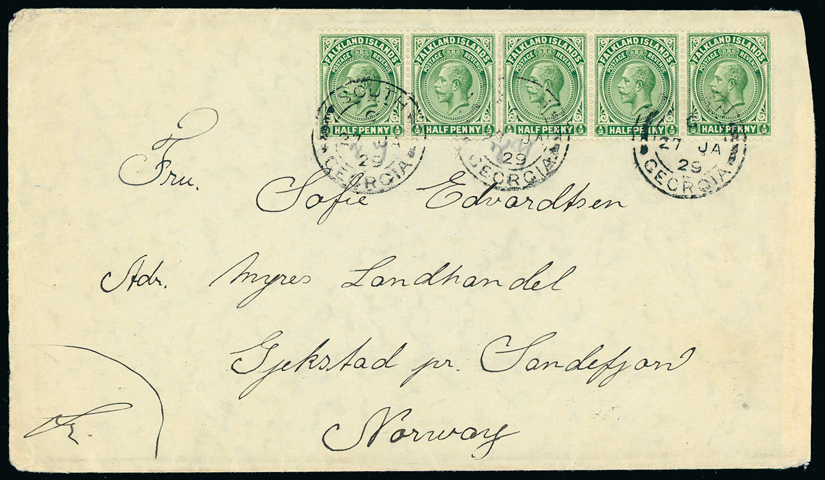 FALKLAND ISLANDS FALKLAND ISLANDS FALKLAND ISLANDS FALKLAND ISLANDS FALKLAND ISLANDS
POSTAGE REVENUE POSTAGE REVENUE POSTAGE REVENUE POSTAGE REVENUE POSTAGE REVENUE
½ HALF PENNY ½ ½ HALF PENNY ½ ½ HALF PENNY ½ ½ HALF PENNY ½ ½ HALF PENNY ½
SOUTH
27 JA
29 29 29
GEORGIA GEORGIA GEORGIA
Fru.
Sofie Edvardtsen
Adr. Myres Landhandel
Gjekstad pr. Sandefjord
Norway